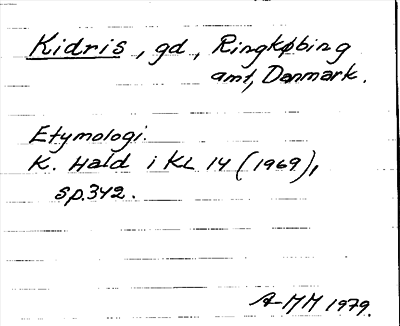 Kidris, gd, Ringkøbing
amt, Danmark.
Etymologi.
K. Hald i KL 14 (1969),
sp.342.
A-MM 1979.